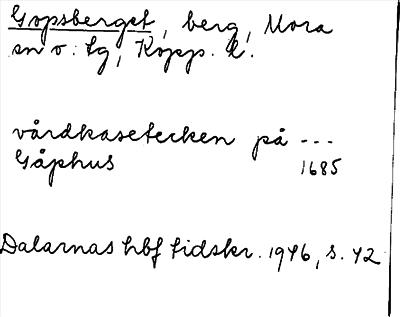 Gopsberget, berg, Mora
sn o. tg, Kopp. l.
vårdkasetecken på ---
Gåphus 1685
Dalarnas hbf tidskr. 1946, s. 42